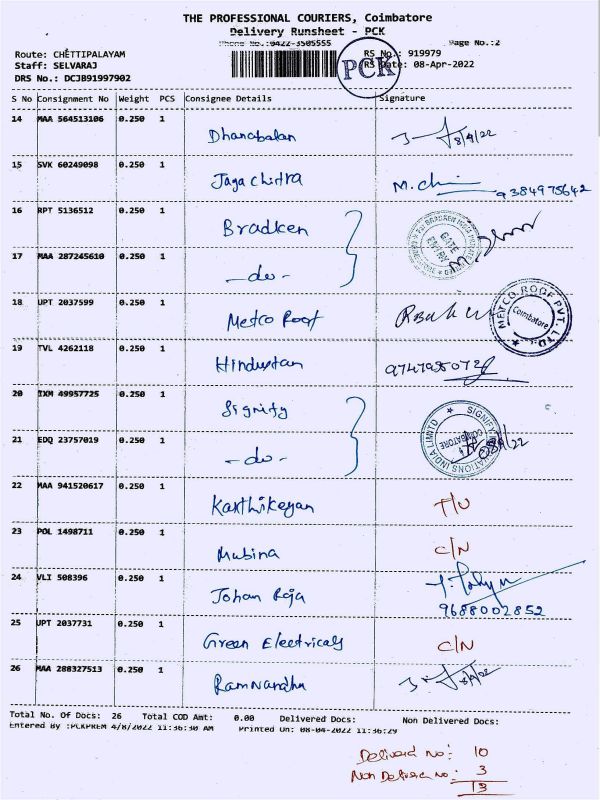 THE PROFESSIONAL COURIERS, Coimbatore
Delivery Runsheet - PCK
Phone No.:0422-3505555 Page No.:2
Route: CHETTIPALAYAM RS No.: 919979
Staff: SELVARAJ PCK RS Date: 08-Apr-2022
DRS No.: DCJB91997902
S No Consignment No Weight PCS Consignee Details Signature
14 MAA 564513106 0.250 1 Dhanabalan 8/4/22
15 SVK 60249098 0.250 1 Jaga Chitra 9384975642
16 RPT 5136512 0.250 1 Bradken GATE ENTRY
17 MAA 287245610 0.250 1 - do -
18 UPT 2037599 0.250 1 Metco Roof METCO ROOF PVT. LTD. Coimbatore
19 TVL 4262118 0.250 1 Hindustan
20 IXM 49957725 0.250 1 Signify
21 EDQ 23757019 0.250 1 - do - COIMBATORE
22 MAA 941520617 0.250 1 Karthikeyan T/U
23 POL 1498711 0.250 1 Mubina C/N
24 VLI 508396 0.250 1 Johan Raja
9688002852
25 UPT 2037731 0.250 1 Green Electricals C/N
26 MAA 288327513 0.250 1 Ramnandha 8/4/22
Total No. Of Docs: 26 Total COD Amt: 0.00 Delivered Docs: Non Delivered Docs:
Entered By :PCKPREM 4/8/2022 11:36:30 AM Printed On: 08-04-2022 11:36:29
Delivered No: 10
Non Deliver No: 3
13